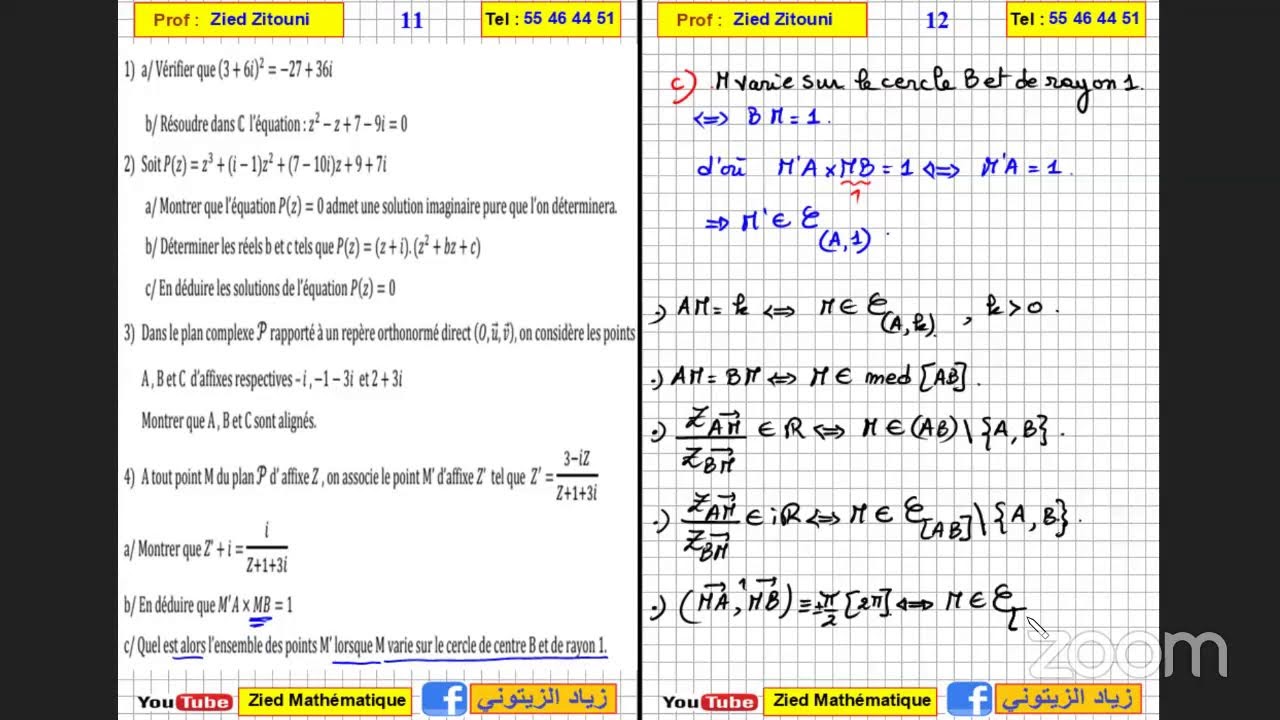 Prof : Zied Zitouni 11 Tel : 55 46 44 51
1) a/ Vérifier que (3 + 6i)² = −27 + 36i
b/ Résoudre dans ℂ l'équation : z² − z + 7 − 9i = 0
2) Soit P(z) = z³ + (i − 1)z² + (7 − 10i)z + 9 + 7i
a/ Montrer que l'équation P(z) = 0 admet une solution imaginaire pure que l'on déterminera.
b/ Déterminer les réels b et c tels que P(z) = (z + i).(z² + bz + c)
c/ En déduire les solutions de l'équation P(z) = 0
3) Dans le plan complexe 𝒫 rapporté à un repère orthonormé direct (O, u⃗, v⃗), on considère les points
A , B et C d'affixes respectives - i , −1 − 3i et 2 + 3i
Montrer que A , B et C sont alignés.
4) A tout point M du plan 𝒫 d' affixe Z , on associe le point M' d'affixe Z' tel que Z' = (3−iZ)/(Z+1+3i)
a/ Montrer que Z' + i = i/(Z+1+3i)
b/ En déduire que M'A × MB = 1
c/ Quel est alors l'ensemble des points M' lorsque M varie sur le cercle de centre B et de rayon 1.
You Tube Zied Mathématique f زياد الزيتوني
Prof : Zied Zitouni 12 Tel : 55 46 44 51
c) M varie sur le cercle B et de rayon 1.
⇔ BM = 1.
d'où M'A × MB = 1 ⇔ M'A = 1.
1
⇒ M' ∈ 𝒞(A, 1).
.) AM = k ⇔ M ∈ 𝒞(A, k) , k > 0 .
.) AM = BM ⇔ M ∈ med [AB].
.) Z_AM⃗ / Z_BM⃗ ∈ ℝ ⇔ M ∈ (AB) \ {A, B}.
.) Z_AM⃗ / Z_BM⃗ ∈ iℝ ⇔ M ∈ 𝒞[AB] \ {A, B}.
.) (MA⃗ , MB⃗) ≡ ± π/2 [2π] ⇔ M ∈ 𝒞[
zoom
You Tube Zied Mathématique f زياد الزيتوني